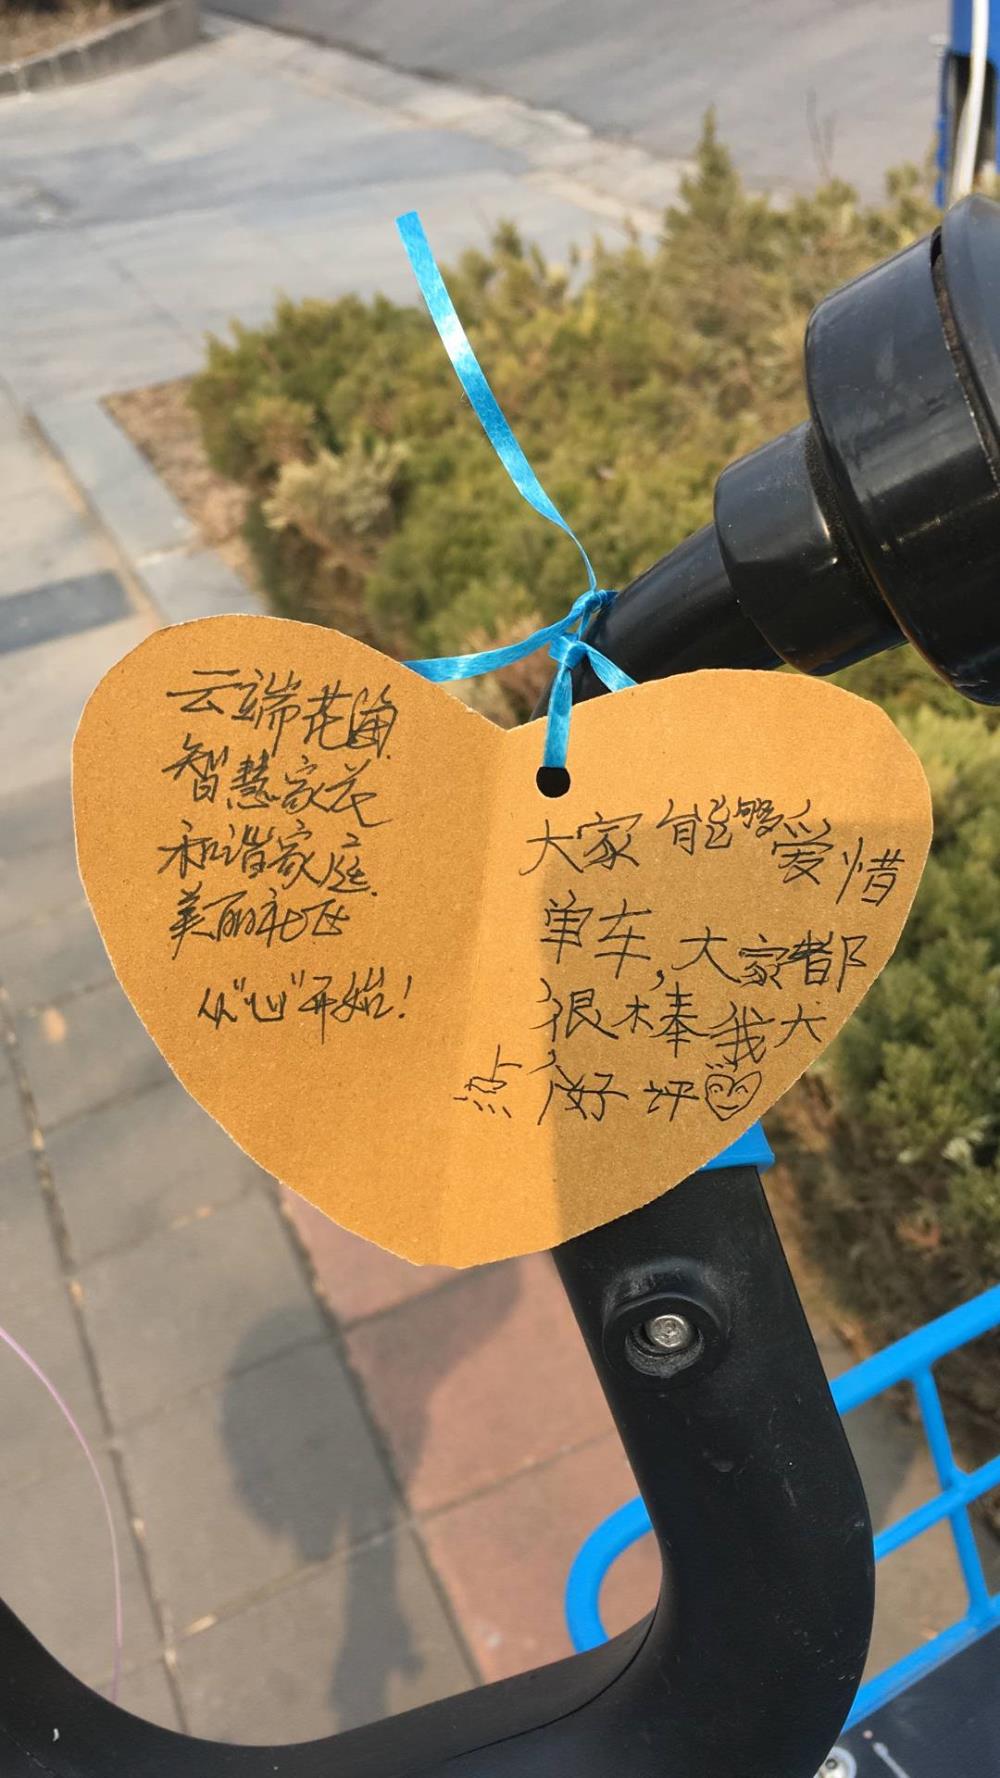 云端花
智慧家
和谐家庭
美丽社区
从“心”开始！
大家能够爱惜
单车，大家都
很棒我大
点，好评